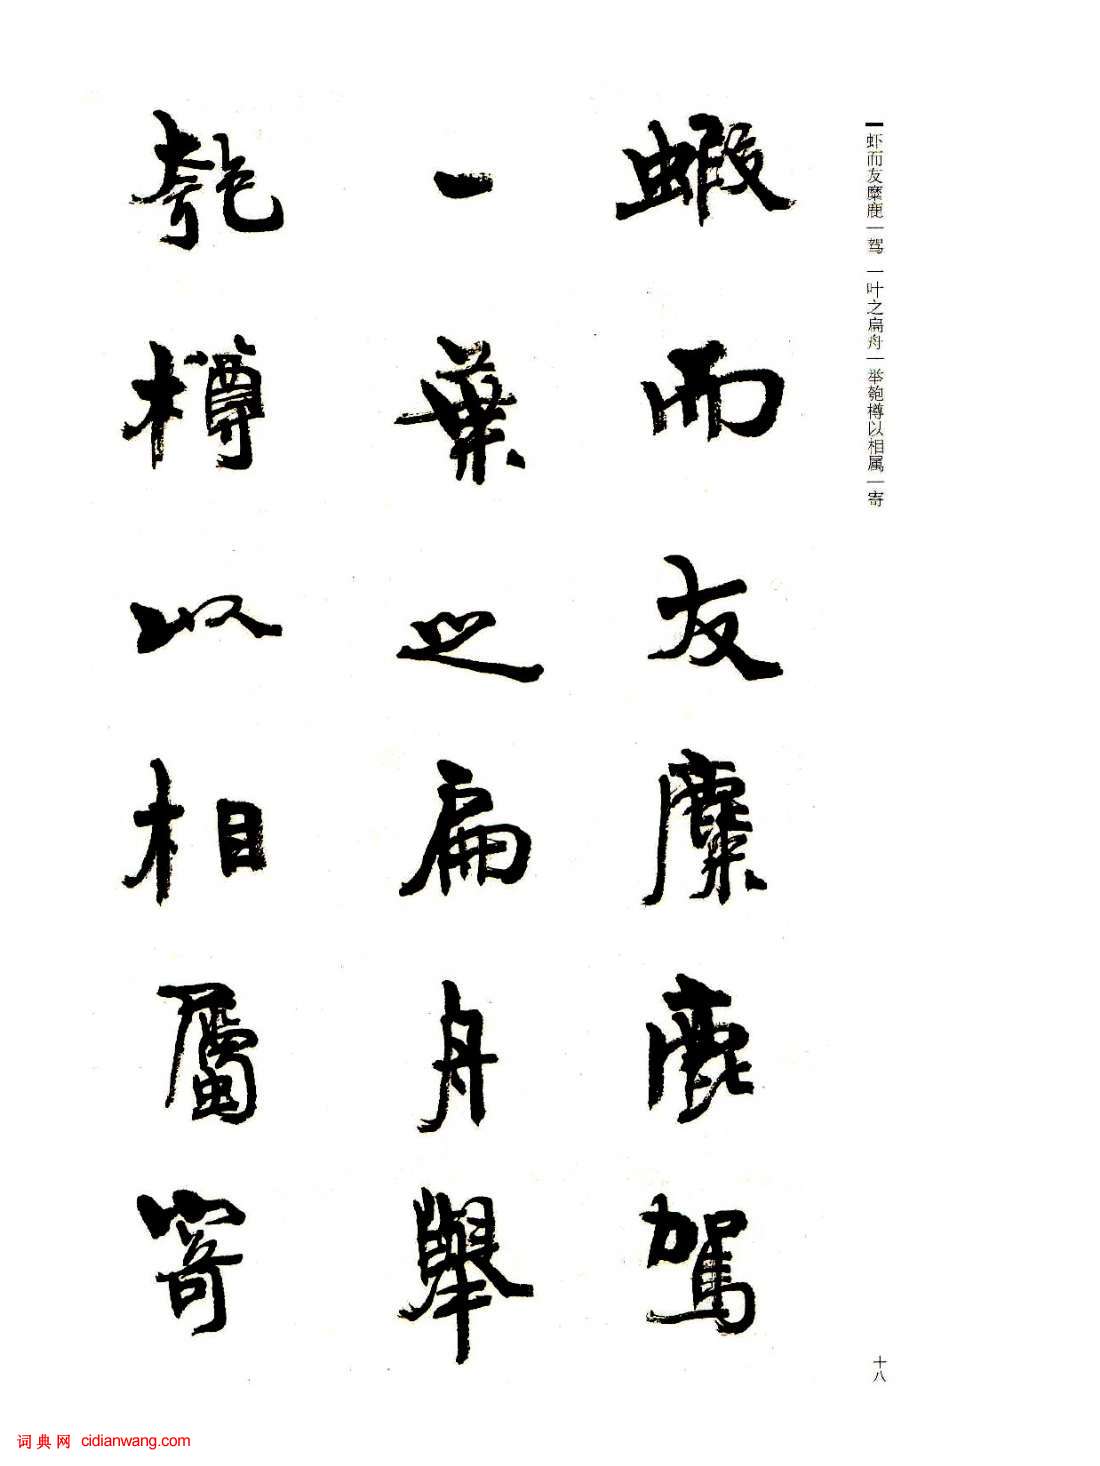 虾而友麋鹿｜驾 一叶之扁舟｜举匏樽以相属｜寄
蝦而友麋鹿駕
一葉之扁舟舉
匏樽以相屬寄
十八
词典网 cidianwang.com